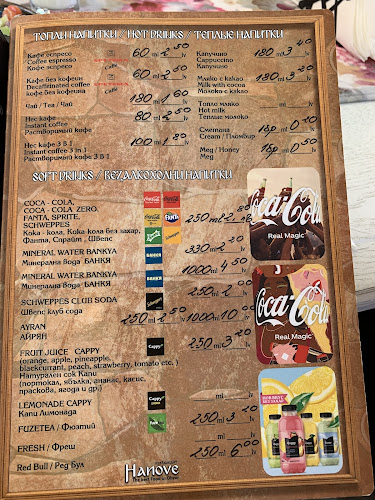 ТОПЛИ НАПИТКИ / HOT DRINKS / ТЕПЛЫЕ НАПИТКИ
Кафе еспресо 60 ml 2.50 lv
Coffee espresso
Кафе эспресо
Кафе без кофеин 60 ml 2.50 lv
Decaffeinated coffee
кофе без кофеина
Чай / Tea / Чай 180 ml 1.60 lv
Нес кафе 80 ml 2.50 lv
Instant coffee
Растворимый кофе
Нес кафе 3 в 1 100 ml 1.80 lv
Instant coffee 3 in 1
Растворимый кофе 3 В 1
Капучино 180 ml 3.40 lv
Cappuccino
Капучино
Мляко с какао 180 ml 3.20 lv
Milk with cocoa
Молоко с какао
Топло мляко ml lv
Hot milk
Теплые молоко
Сметана 1бр 0.40 lv
Cream / Пломбир
Мед / Honey 1бр lv
Мед
SOFT DRINKS / БЕЗАЛКОХОЛНИ НАПИТКИ
COCA - COLA
COCA - COLA ZERO,
FANTA, SPRITE,
SCHWEPPES 250 ml 2.80 lv
Кока - Кола, Кока-кола без захар,
Фанта, Спрайт, Швепс
MINERAL WATER BANKYA 330 ml 2.20 lv
Минерална вода БАНКЯ
MINERAL WATER BANKYA 1000 ml 4.50 lv
Минерална вода БАНКЯ
SCHWEPPES CLUB SODA 250 ml 2.00 lv
Швепс клуб сода
AYRAN 250 ml 2.50 lv 1000 ml 10.00 lv
АЙРЯН
FRUIT JUICE CAPPY 250 ml 3.20 lv
(orange, apple, pineapple,
blackcurrant, peach, strawberry, tomato etc.)
Натурален сок Капи
(портокал, ябълка, ананас, касис,
праскова, ягода и др)
LEMONADE CAPPY ml lv
Капи Лимонада
FUZETEA / Фюзтий 250 ml 3.20 lv
FRESH / Фреш ml lv
Red Bull / Ред Бул 250 ml 6.00 lv
Coca-Cola
Real Magic
Coca-Cola
Real Magic
Cappy
Cappy
BANKIA
BANKIA
Fanta
Hanove